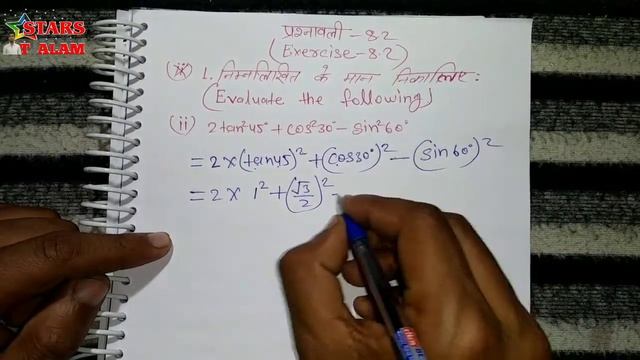 STARS
T ALAM
प्रश्नावली - 8.2
(Exercise - 8.2)
1. निम्नलिखित के मान निकालिए :
(Evaluate the following)
(ii) 2tan²45° + cos²30° - sin²60°
= 2 × (tan45)² + (cos30°)² - (sin60°)²
= 2 × 1² + (√3/2)² -